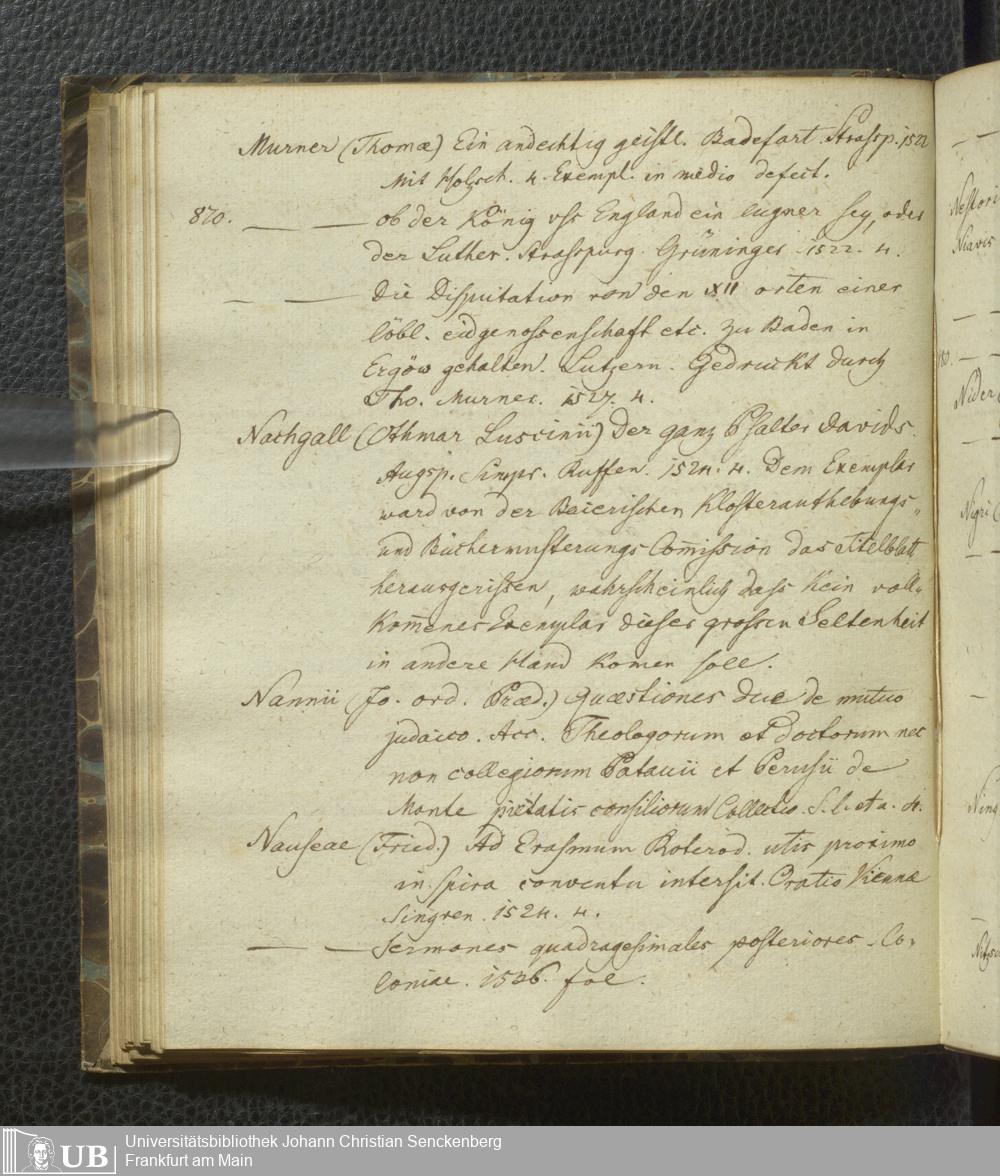 Murner (Thomæ) Ein andechtig geistl. Badefart. Strassp. 1522
Mit Holzsch. 4. Exempl. in medio defect.
870. — — ob der König uss England ein lugner sey, oder
der Luther. Strasspurg. Grüninger. 1522. 4.
— — Die Disputation von den XII orten einer
löbl. eidgenossenschaft etc. zu Baden in
Ergöw gehalten. Lutzern. Gedruckt durch
Tho. Murner. 1527. 4.
Nachgall (Othmar Luscinii) Der ganz Psalter Davids.
Augsp. Simpr. Ruffen. 1524. 4. Dem Exemplar
ward von der Beierischen Klosteraufhebungs
und Büchermusterungs Com̄ission das Titelblatt
herausgerissen, wahrscheinlich dass kein voll
kom̄enes Exemplar dieser grossen Seltenheit
in andere Hand komen soll.
Nannii (Jo. ord. Præd.) Quæstiones due de mutuo
judaico. Acc. Theologorum et Doctorum nec
non collegiorum Patauii et Perusii de
Monte pietatis consiliorum Collectio. S. l. et a. 4.
Nauseae (Fried.) Ad Erasmum Roterod. utis proximo
in Spira conventu intersit. Oratio Viennæ
Singren. 1524. 4.
— — Sermones quadragesimales posteriores. Co
loniae. fol.
Nestori
Niavis
— —
180. —
Nider (
—
Nigri (
— —
—
Ning
Nitzsc
UB Universitätsbibliothek Johann Christian Senckenberg
Frankfurt am Main